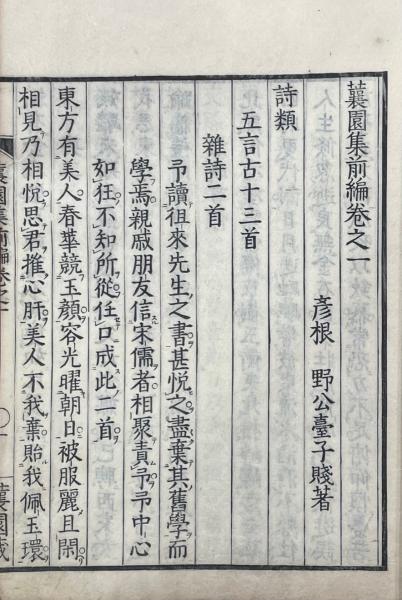 蘘園集前編卷之一
彦根 野公臺子賤著
詩類
五言古十三首
雜詩二首
予讀徂來先生之書甚悦之盡棄其舊學而
學焉親戚朋友信宋儒者相聚責予予中心
如狂不知所從任口成此二首
東方有美人春華競玉顔容光曜朝日被服麗且閑
相見乃相悦思君推心肝美人不我棄貽我佩玉環
蘘園集前編卷之一 〇一 蘘園藏